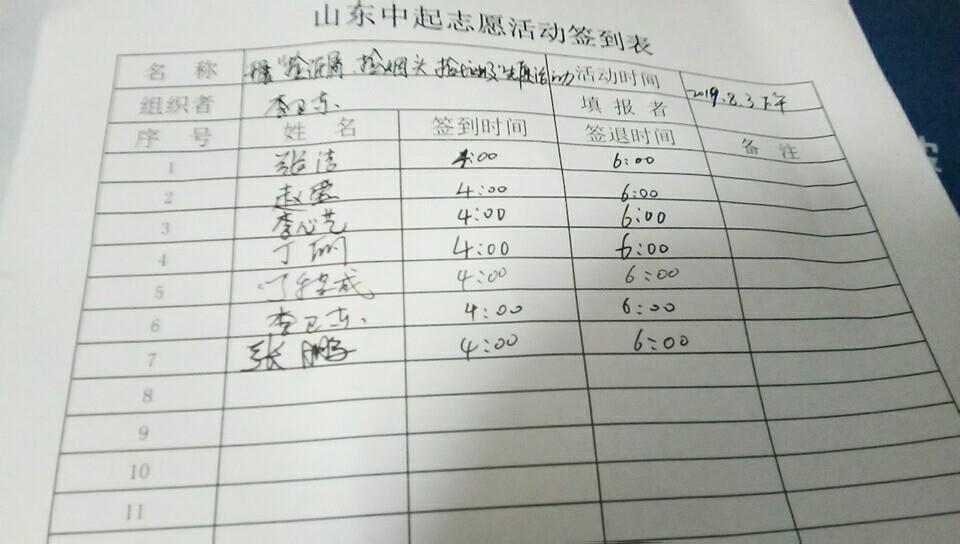 山东中起志愿活动签到表
名 称 捡烟头 活动时间 2019.8.3下午
组织者 李卫东 填报者
序 号 姓 名 签到时间 签退时间 备 注
1 张洁 4:00 6:00
2 赵 4:00 6:00
3 李心艺 4:00 6:00
4 丁 4:00 6:00
5 丁 成 4:00 6:00
6 李卫东 4:00 6:00
7 张鹏 4:00 6:00
8
9
10
11